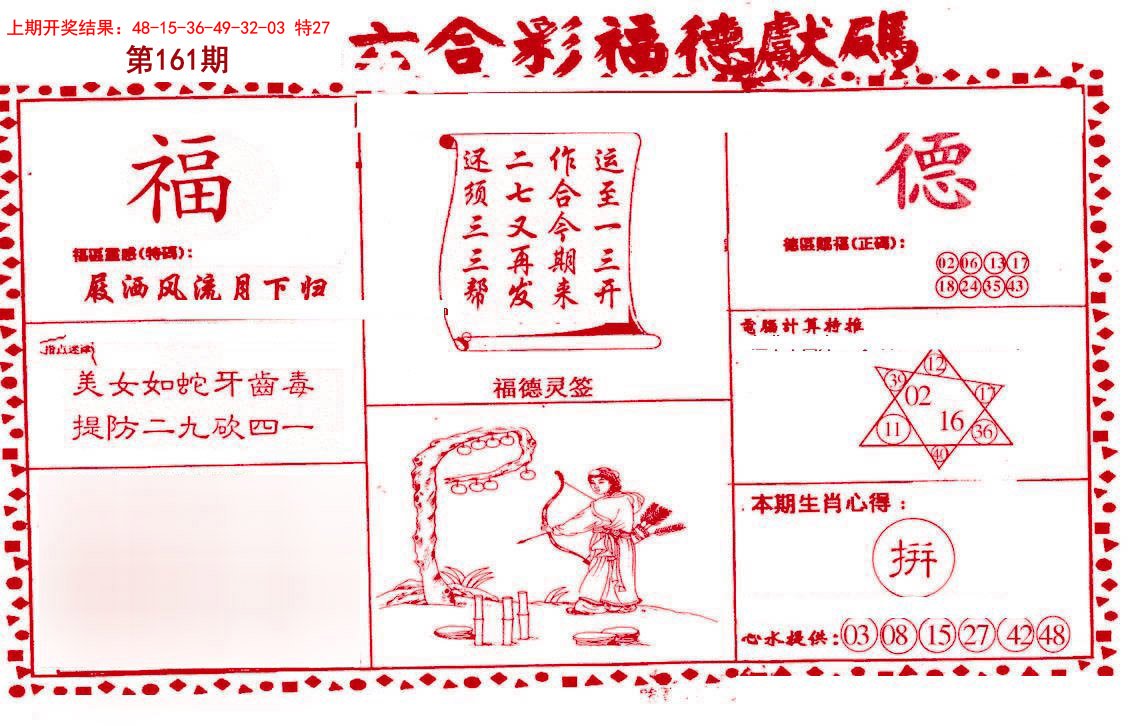 上期开奖结果：48-15-36-49-32-03 特27
第161期
六合彩福德獻碼
福
福區靈感(特碼)：
屐洒风流月下归
指点迷津
美女如蛇牙齒毒
提防二九砍四一
运至一三开
作合今期来
二七又再发
还须三三帮
福德灵签
德
德區賜福(正碼)：
02 06 13 17
18 24 35 43
電腦計算特推
12
39 02 17
11 16 36
40
本期生肖心得：
拼
心水提供：03 08 15 27 42 48